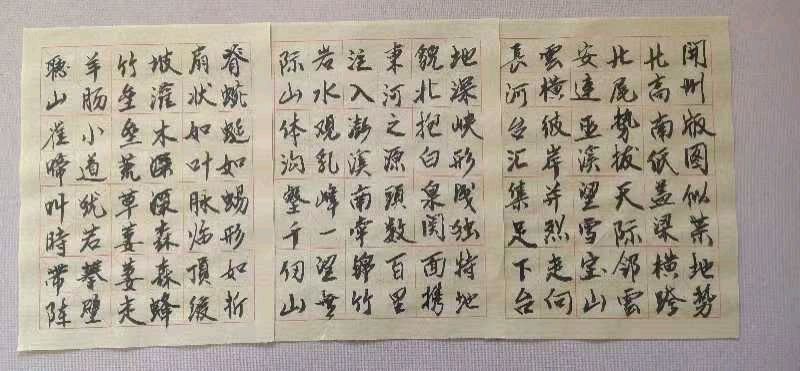 開州版图似菜地势
北高南低盖梁横跨
北尾势拔天际邻雲
安连亚溪望雪宝山
雲横彼岸并烈走向
長河台汇集足下台
地深峡形成独特地
貌北抱白泉関面携
東河之源頭数百里
注入澎溪南牵锦竹
岩水观乳峰一望無
际山体沟壑千仞山
脊蜿蜒如蜴形如折
扇状如叶脉頂缓
坡灌木深深森森蜂
竹垒垒荒草萋萋走
羊肠小道犹若攀壁
聽山雀啼叫時带阵